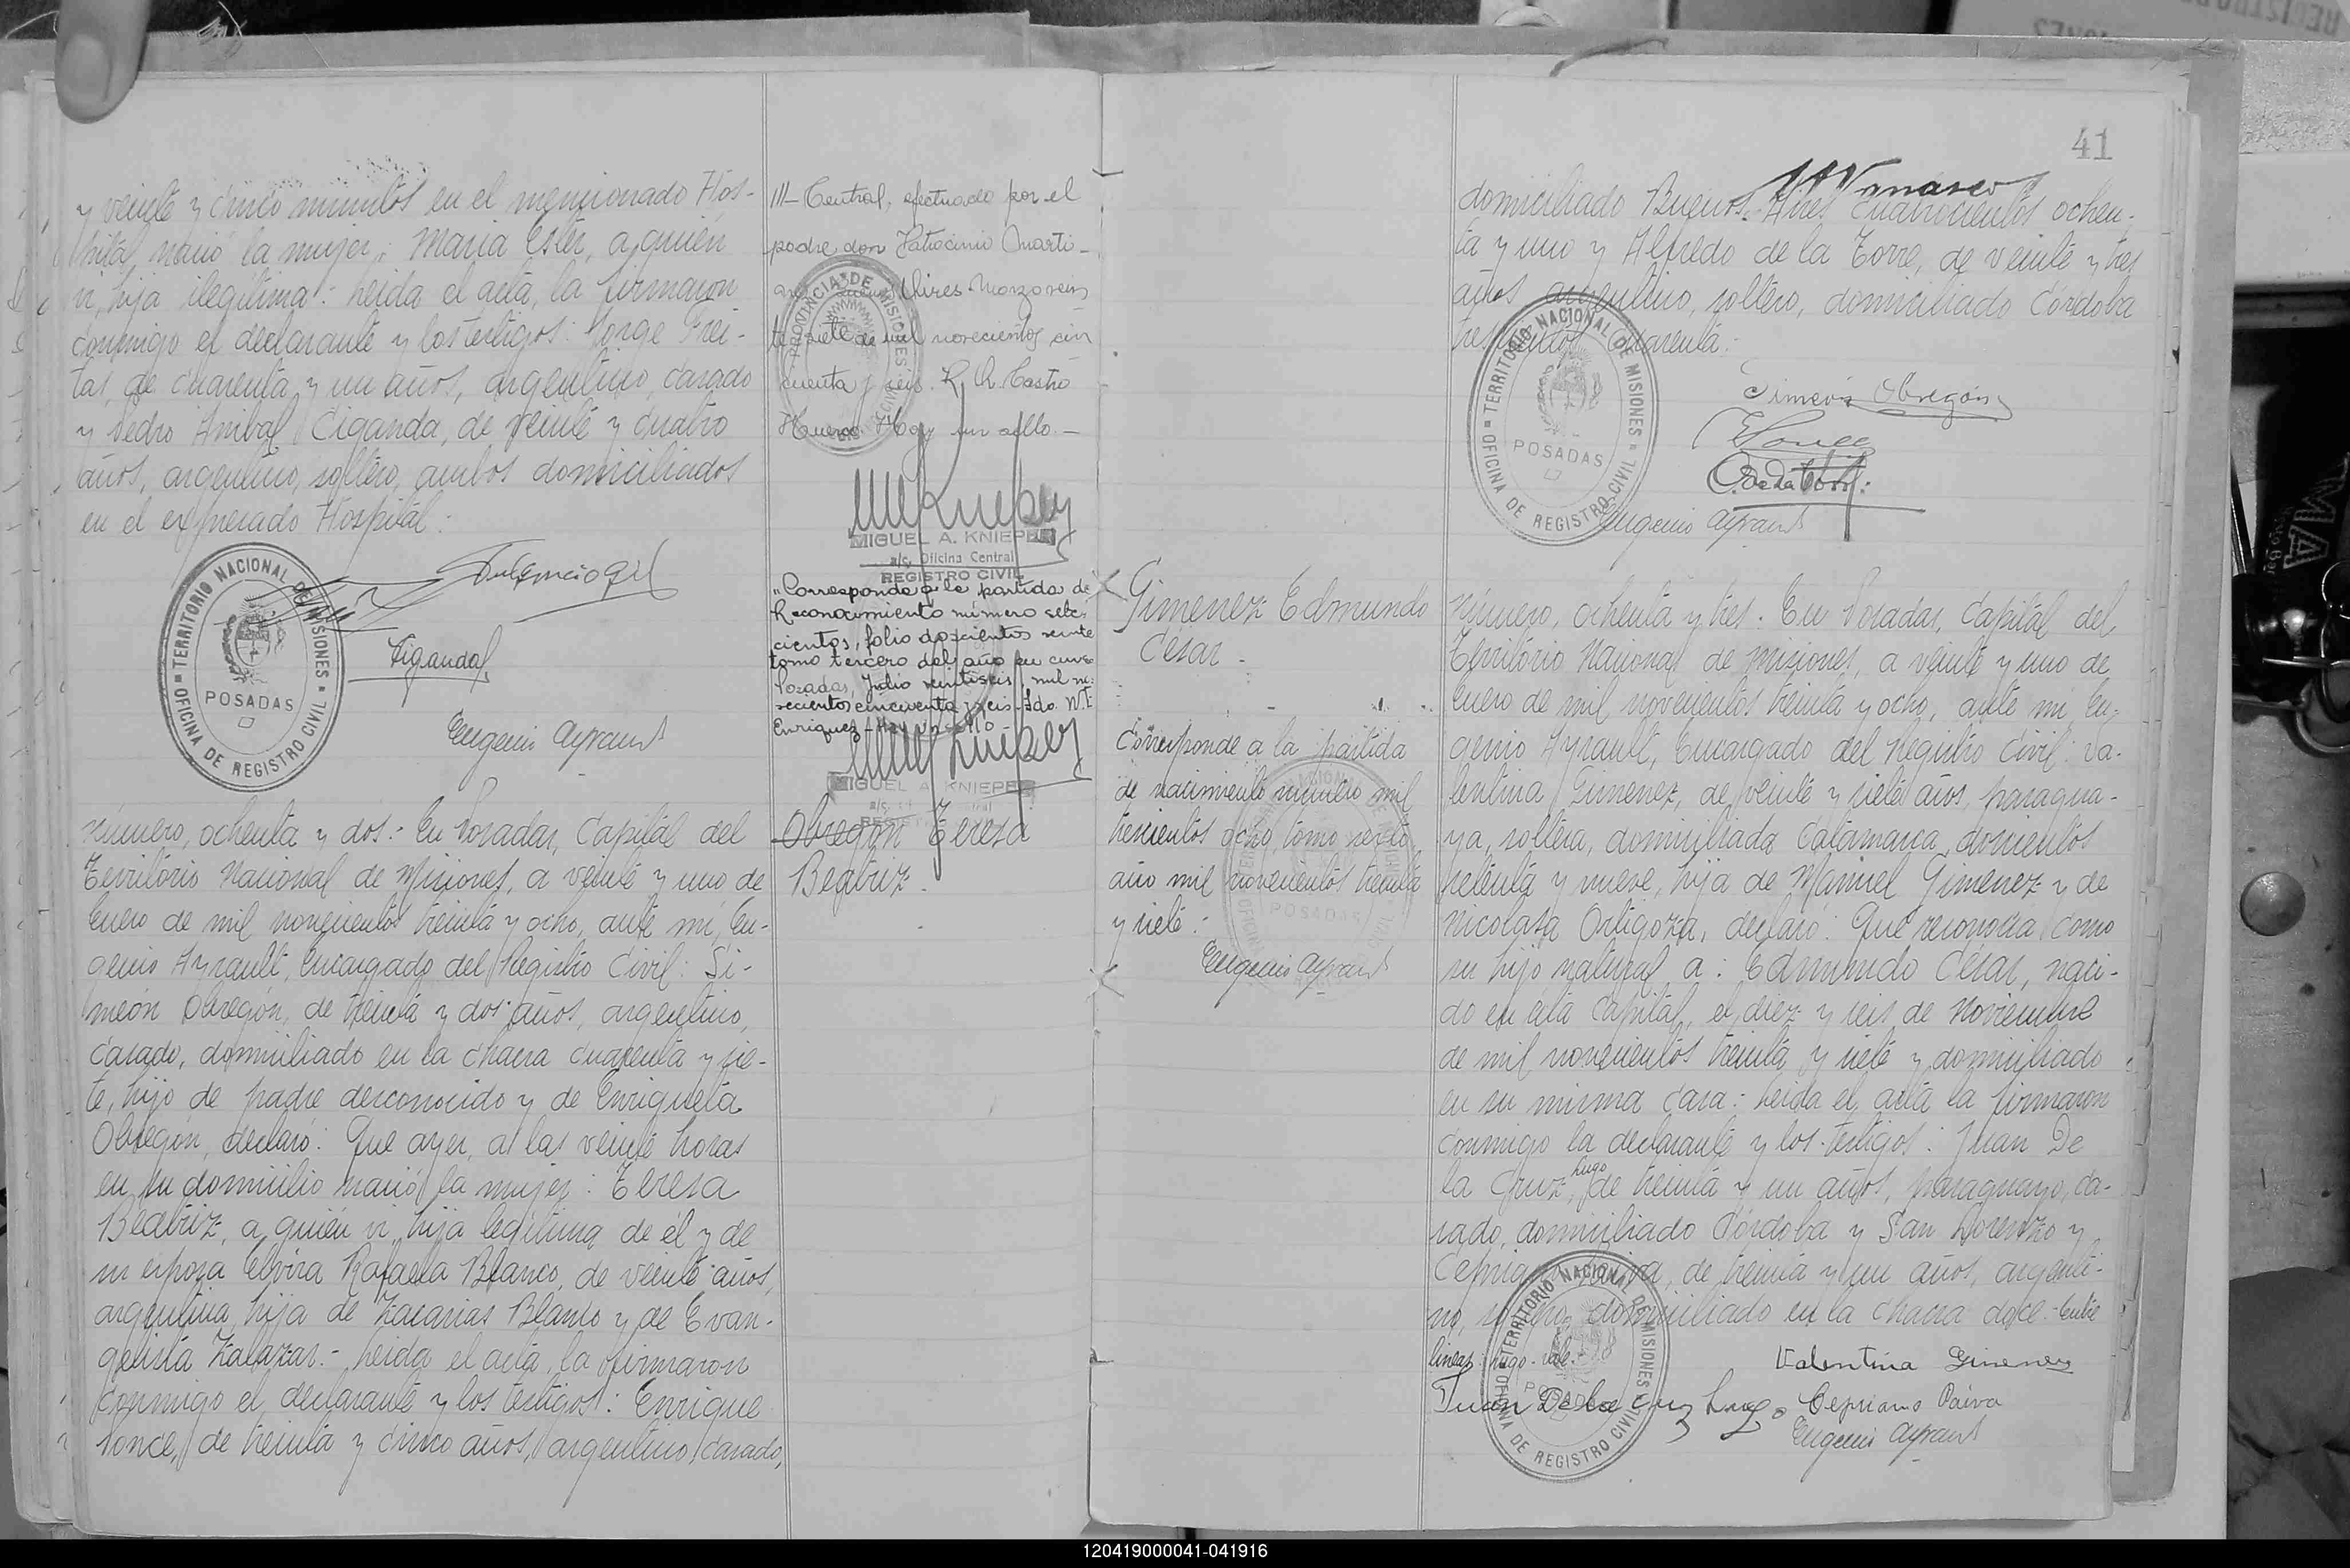 y veinte y cinco minutos en el mencionado Hos-
pital, nació la mujer: María Ester, a quién
vi, hija ilegítima:- Leída el acta, la firmaron
conmigo el declarante y los testigos: Jorge Frei-
tas, de cuarenta y un años, argentino, casado
y Pedro Anibal Ciganda, de veinte y cuatro
años, argentino, soltero, ambos domiciliados
en el expresado Hospital:
TERRITORIO NACIONAL DE MISIONES
POSADAS
OFICINA DE REGISTRO CIVIL
Fulgencio Gil
Cigandaf.
Eugenio Ayrault
Número, ochenta y dos:- En Posadas, Capital del
Territorio Nacional de Misiones, a veinte y uno de
Enero de mil novecientos treinta y ocho, ante mí, Eu-
genio Ayrault, Encargado del Registro Civil: Si-
meón Obregón, de treinta y dos años, argentino,
casado, domiciliado en la chacra cuarenta y sie-
te, hijo de padre desconocido y de Enriqueta
Obregón, declaró: Que ayer, a las veinte horas
en su domicilio nació la mujer: Teresa
Beatriz, a quién vi, hija legítima de él y de
su esposa Elvira Rafaela Blanco, de veinte años,
argentina, hija de Zacarias Blanco y de Evan-
gelista Zalazar.- Leída el acta, la firmaron
conmigo el declarante y los testigos: Enrique
Ponce, de treinta y cinco años, argentino, casado,
///- Central, efectuado por el
padre don Patrocinio Marti-
Aires Marzo vein
te siete de mil novecientos cin
cuenta y seis. R. A. Castro
Huergo. Hay un sello.-
PROVINCIA DE MISIONES
MIGUEL A. KNIEPER
a/c. Oficina Central
REGISTRO CIVIL
"Corresponde a la partida de
Reconocimiento número sete-
cientos, folio doscientos veinte
tomo tercero del año en curso
Posadas, Julio veintiseis mil no-
vecientos cincuenta y seis. Fdo. W. E.
Enriquez - Hay un sello -
MIGUEL A. KNIEPER
Obregón Teresa
Beatriz.
41
domiciliado Buenos Aires cuatrocientos ochen-
ta y uno y Alfredo de la Torre, de veinte y tres
años, argentino, soltero, domiciliado Córdoba
trescientos cuarenta:
TERRITORIO NACIONAL DE MISIONES
POSADAS
OFICINA DE REGISTRO CIVIL
Simeón Obregón
Eugenio Ayrault
Gimenez Edmundo
César -
Corresponde a la partida
de nacimiento número mil
trescientos ocho, tomo sexto,
año mil novecientos treinta
y siete:
Eugenio Ayrault
Número, ochenta y tres. En Posadas, Capital del
Territorio Nacional de Misiones, a veinte y uno de
Enero de mil novecientos treinta y ocho, ante mí, Eu-
genio Ayrault, Encargado del Registro Civil: Va-
lentina Gimenez, de veinte y siete años, paragua-
ya, soltera, domiciliada Catamarca, doscientos
setenta y nueve, hija de Manuel Gimenez y de
Nicolasa Ortigoza, declaró: Que reconocía como
su hijo natural a: Edmundo César, naci-
do en esta Capital, el diez y seis de Noviembre
de mil novecientos treinta y siete y domiciliado
en su misma casa:- Leída el acta la firmaron
conmigo la declarante y los testigos: Juan De
la Cruz, Lugo de treinta y un años, paraguayo, ca-
sado, domiciliado Córdoba y San Lorenzo y
Cepriano Paiva, de treinta y un años, argenti-
no, soltero, domiciliado en la chacra doce.- Entre
lineas: Lugo - vale.-
TERRITORIO NACIONAL DE MISIONES
POSADAS
OFICINA DE REGISTRO CIVIL
Valentina Gimenez
Juan De la Cruz Lugo
Cepriano Paiva
Eugenio Ayrault
120419000041-041916